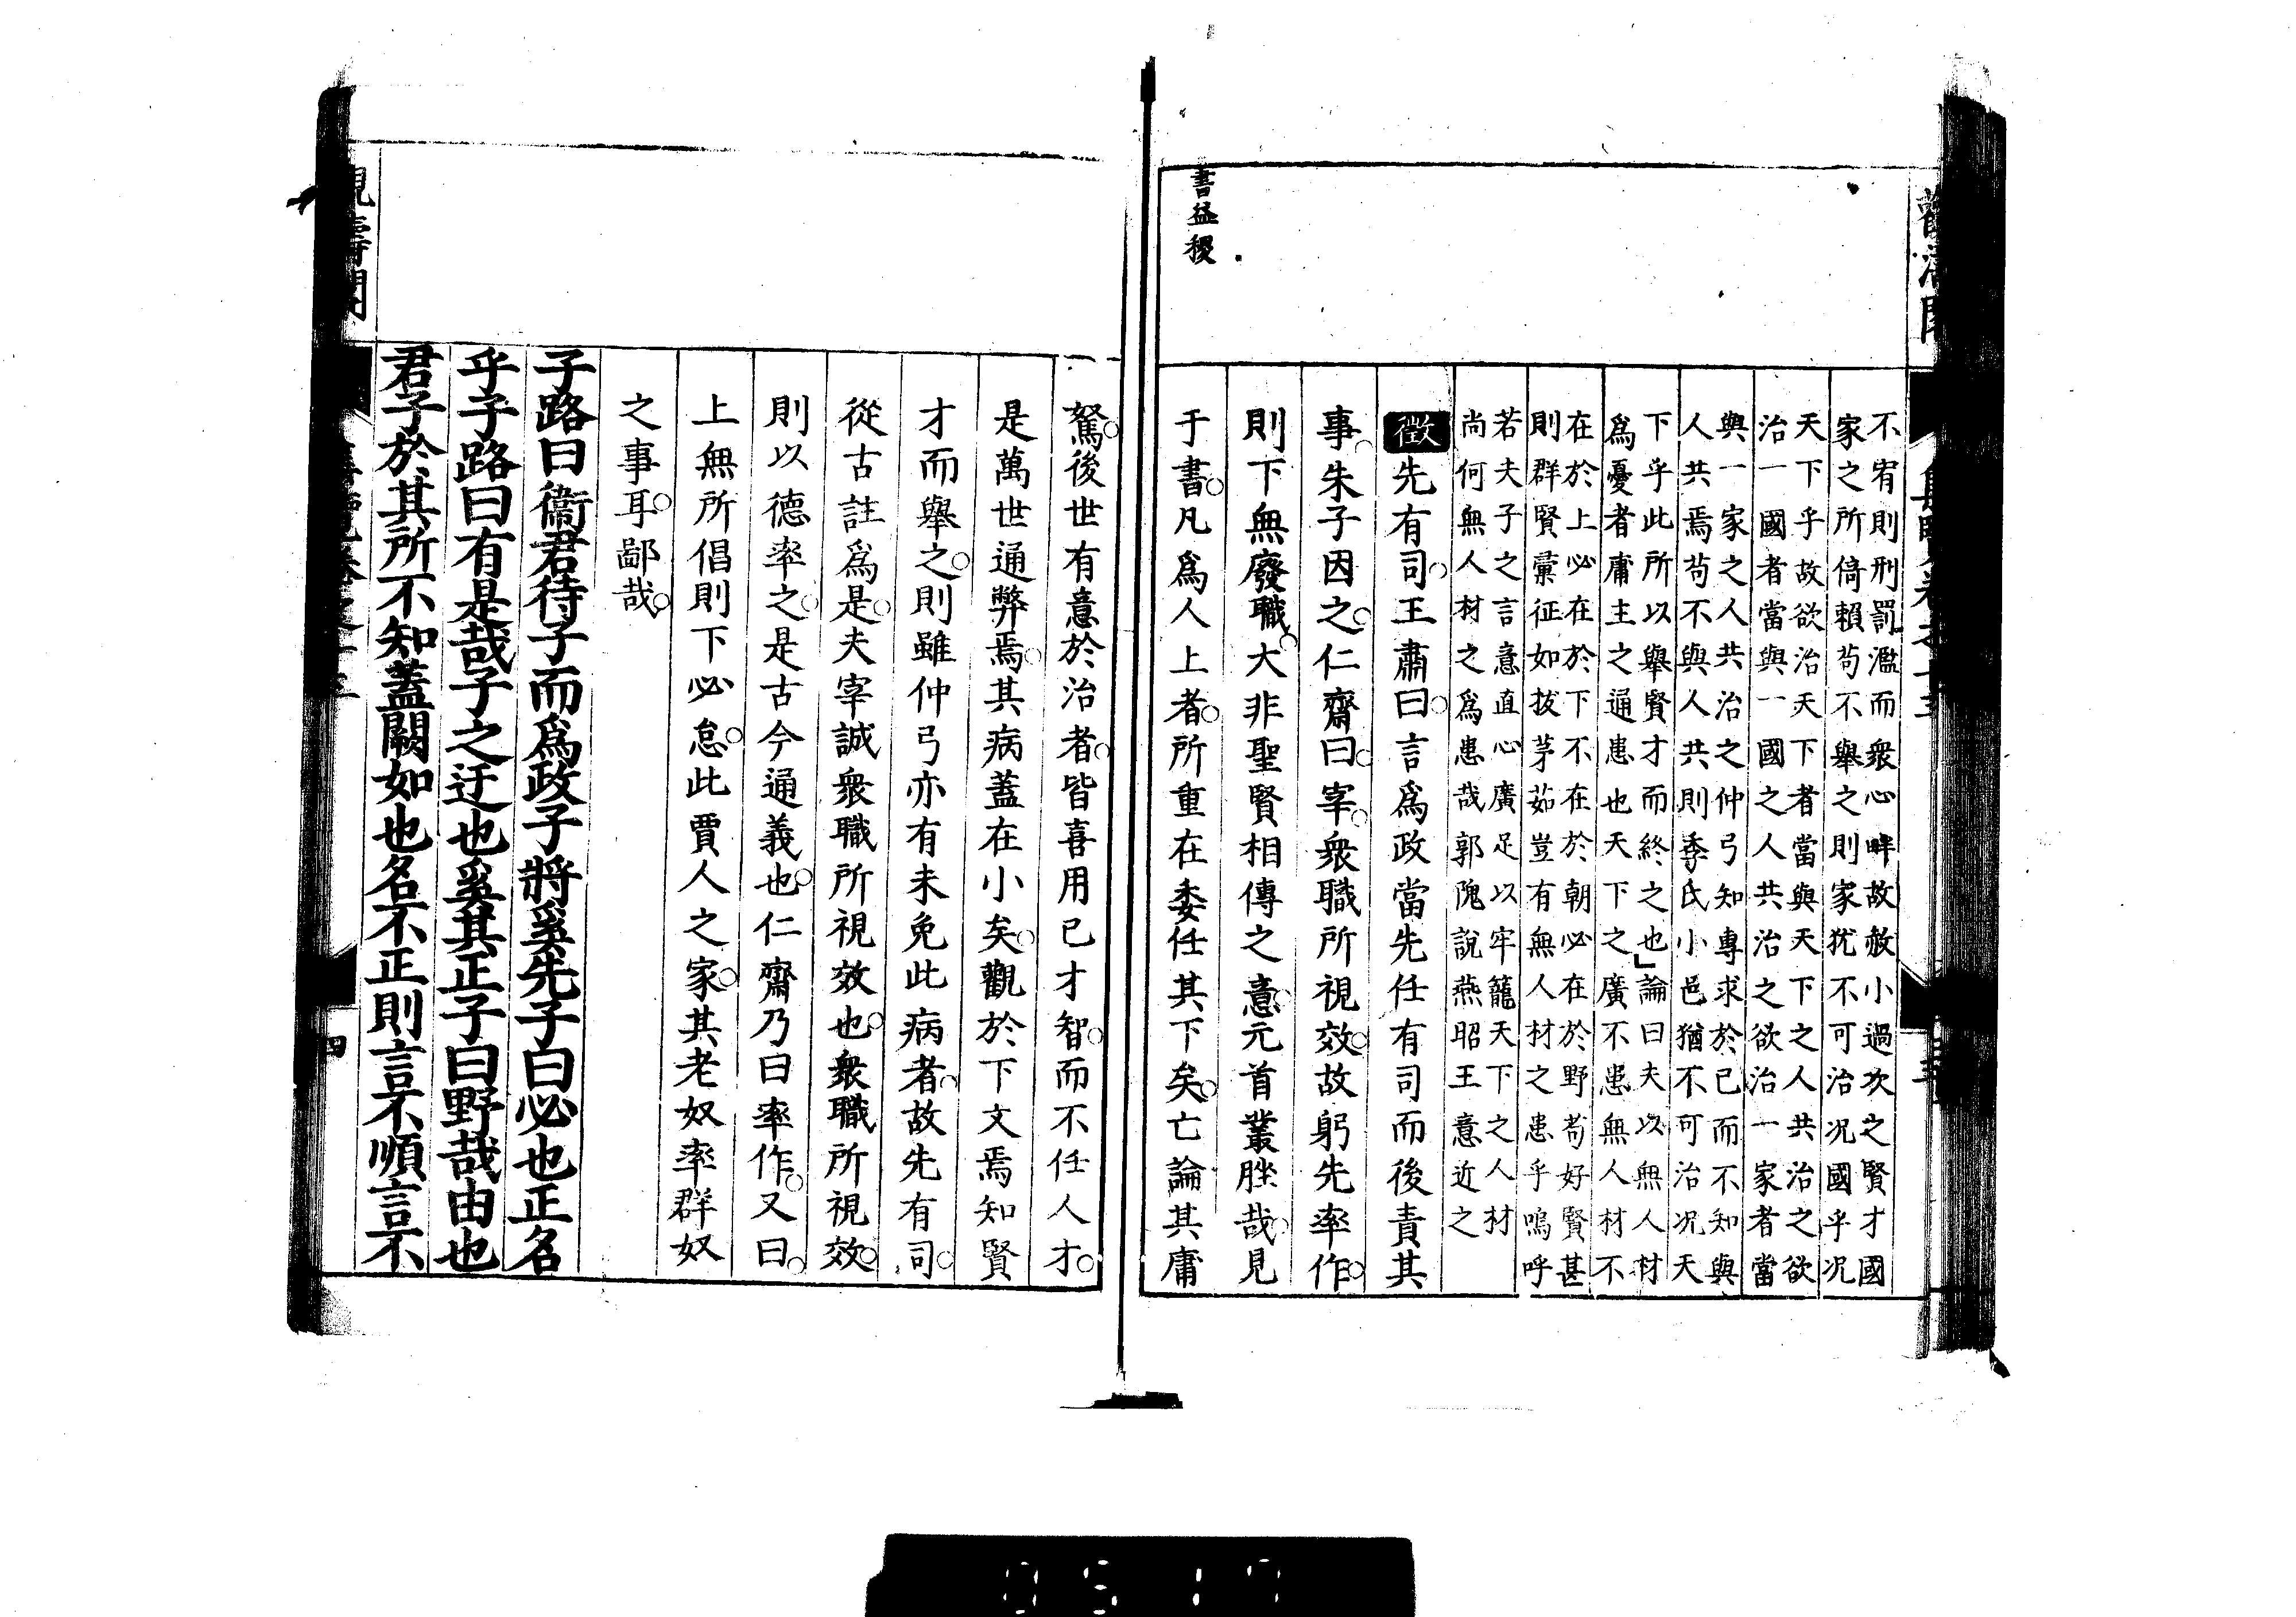 不宥則刑罰濫而衆心畔故赦小過次之賢才國
家之所倚賴苟不舉之則家犹不可治况國乎况
天下乎故欲治天下者當與天下之人共治之欲
治一國者當與一國之人共治之欲治一家者當
與一家之人共治之仲弓知專求於已而不知與
人共焉苟不與人共則季氏小邑猶不可治况天
下乎此所以舉賢才而終之也」論曰夫以無人材
爲憂者庸主之通患也天下之廣不患無人材不
在於上必在於下不在於朝必在於野苟好賢甚
則群賢彙征如拔茅茹豈有無人材之患乎嗚呼
若夫子之言意直心廣足以牢籠天下之人材
尚何無人材之爲患哉郭隗說燕昭王意近之
徵先有司○王肅曰○言爲政當先任有司而後責其
事○朱子因之○仁齋曰○宰○衆職所視效○故躬先率作○
則下無廢職○大非聖賢相傳之意○元首叢脞哉○見
書益稷
于書○凡爲人上者○所重在委任其下矣○亡論其庸
駑○後世有意於治者○皆喜用已才智○而不任人才○
是萬世通弊焉○其病蓋在小矣○觀於下文焉知賢
才而舉之○則雖仲弓亦有未免此病者○故先有司○
從古註爲是○夫宰誠衆職所視效也○衆職所視效○
則以德率之○是古今通義也○仁齋乃曰率作○又曰○
上無所倡則下必怠○此賈人之家○其老奴率群奴
之事耳○鄙哉○
子路曰衞君待子而爲政子將奚先子曰必也正名
乎子路曰有是哉子之迂也奚其正子曰野哉由也
君子於其所不知蓋闕如也名不正則言不順言不
四